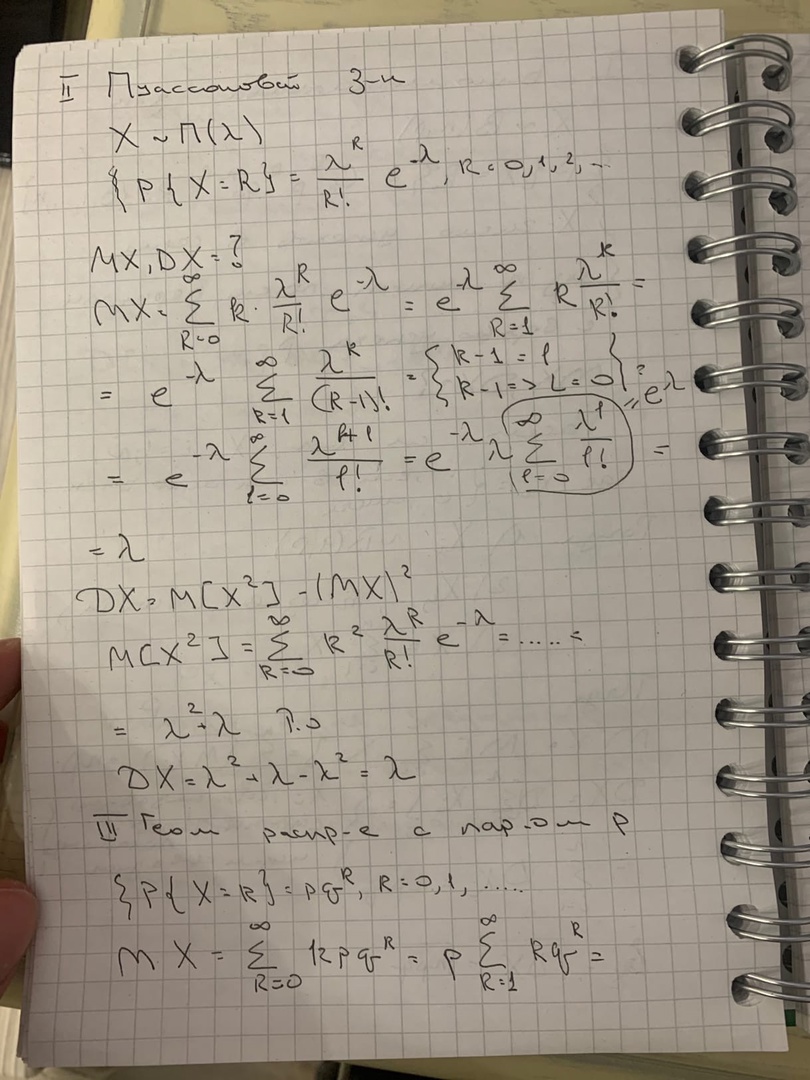 II Пуассоновский з-н
X ~ П(λ)
{P{X=k} = λ^k/k! e^-λ, k=0,1,2,...
MX, DX = ?
MX = ∑_{k=0}^∞ k · λ^k/k! e^-λ = e^-λ ∑_{k=1}^∞ k λ^k/k! =
= e^-λ ∑_{k=1}^∞ λ^k/(k-1)! = {k-1 = l
k-1 => l = 0} =
= e^-λ ∑_{l=0}^∞ λ^{l+1}/l! = e^-λ λ ∑_{l=0}^∞ λ^l/l! = = e^λ
= λ
DX = M[X²] - (MX)²
M[X²] = ∑_{k=0}^∞ k² λ^k/k! e^-λ = ..... =
= λ² + λ Т.о
DX = λ² + λ - λ² = λ
III Геом распр-е с пар-ом p
{P{X=k} = pq^k, k=0,1, .....
MX = ∑_{k=0}^∞ kpq^k = p ∑_{k=1}^∞ kq^k =